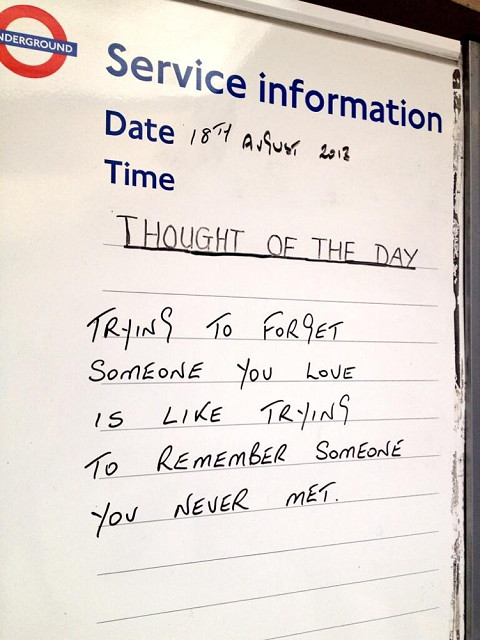 UNDERGROUND
Service information
Date 18TH AUGUST 2013
Time
THOUGHT OF THE DAY
TRYING TO FORGET
SOMEONE YOU LOVE
IS LIKE TRYING
TO REMEMBER SOMEONE
YOU NEVER MET.